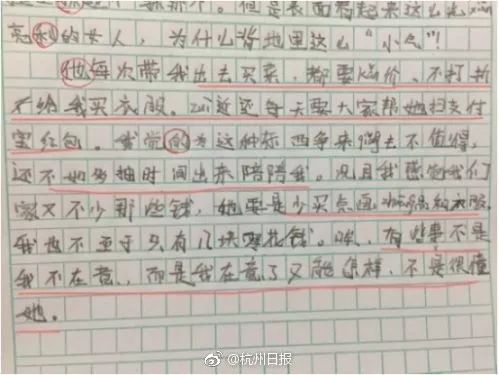 但是表面看起来这么
亮利的女人，为什么背地里这么“小气”！
他每次带我出去买菜，都要砍价，不打折
不给我买衣服。最近还每天要大家帮她扫支付
宝红包。我觉的为这种东西争来争去不值得，
还不如多抽时间出来陪陪我。况且我感觉我们
家又不少那些钱，她要是少买点画得的衣服，
我也不至于只有几块零花钱。唉，有些事不是
我不在意，而是我在意了又能怎样，不是很懂
她。
@杭州日报